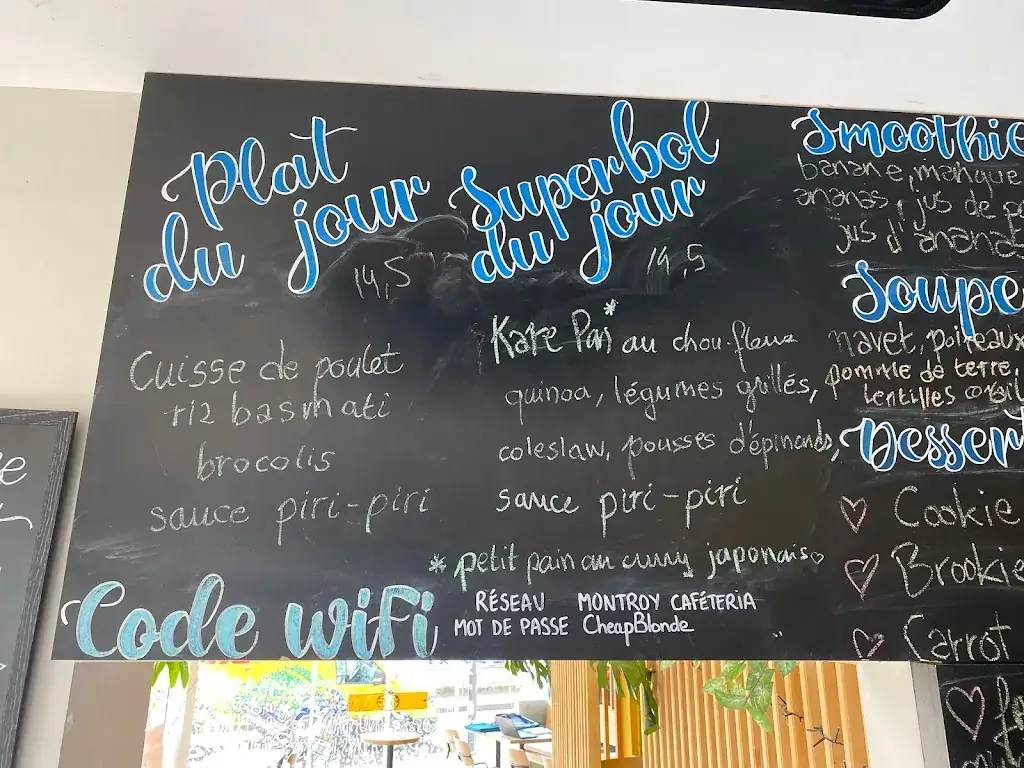 Plat
du jour
14,5
Cuisse de poulet
riz basmati
brocolis
sauce piri-piri
Superbol
du jour
14,5
Kare Pan*
au chou-fleur
quinoa, légumes grillés,
coleslaw, pousses d'épinards,
sauce piri-piri
* petit pain au curry japonais
Smoothie
banane, mangue
ananas, jus de
jus d'ananas
Soupe
navet, poireaux
pomme de terre,
lentilles corail
Dessert
Cookie
Brookie
Carrot
Code wifi
RÉSEAU MONTROY CAFÉTERIA
MOT DE PASSE CheapBlonde